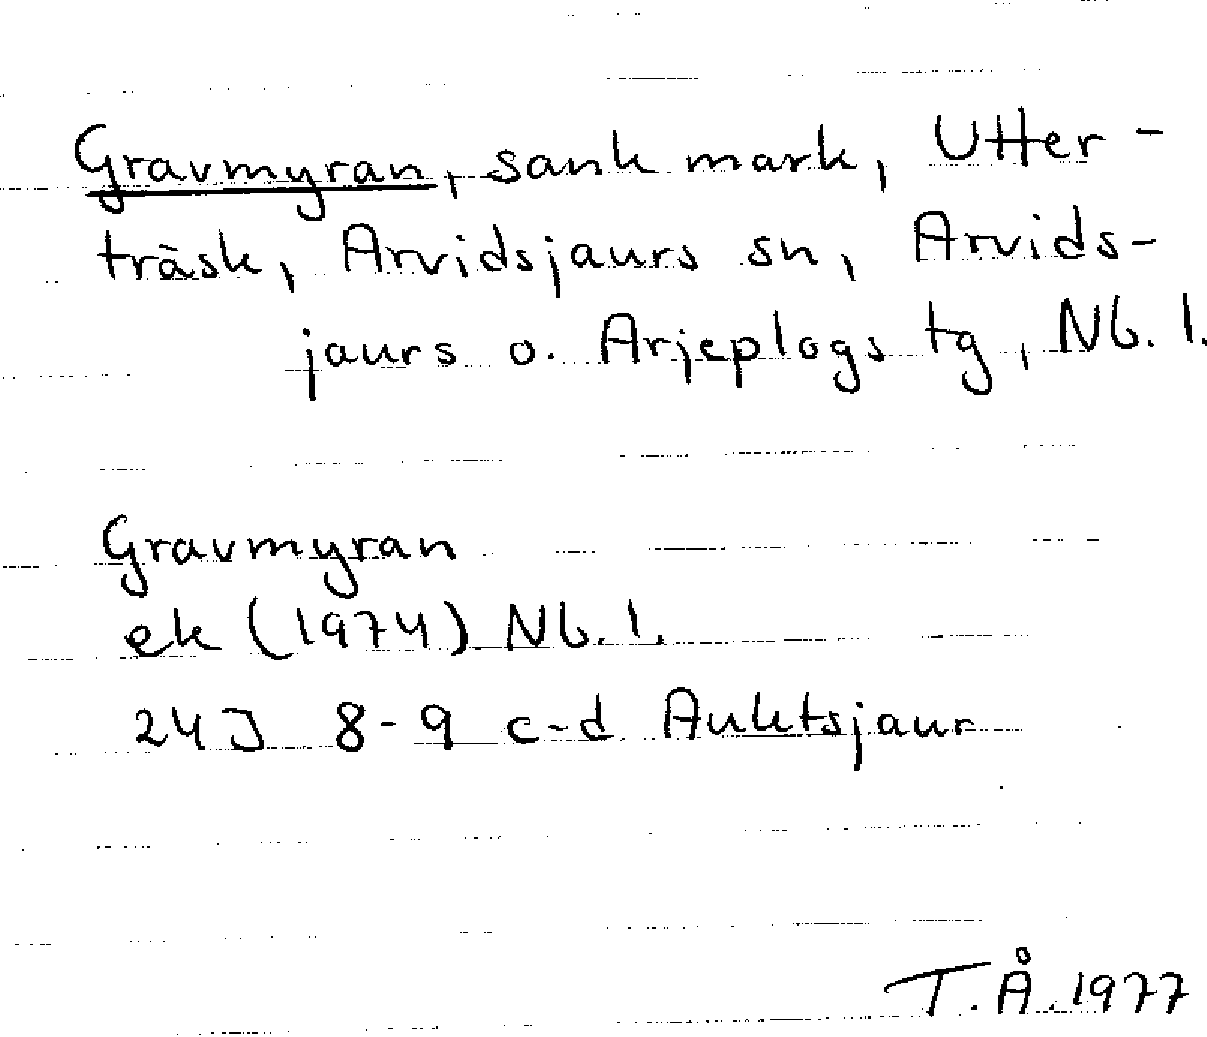 Gravmyran, sank mark, Utter-
träsk, Arvidsjaurs sn, Arvids-
jaurs o. Arjeplogs tg, Nb. l.
Gravmyran
ek (1974) Nb. l.
24J 8-9 c-d Auktsjaur
T.Å.1977